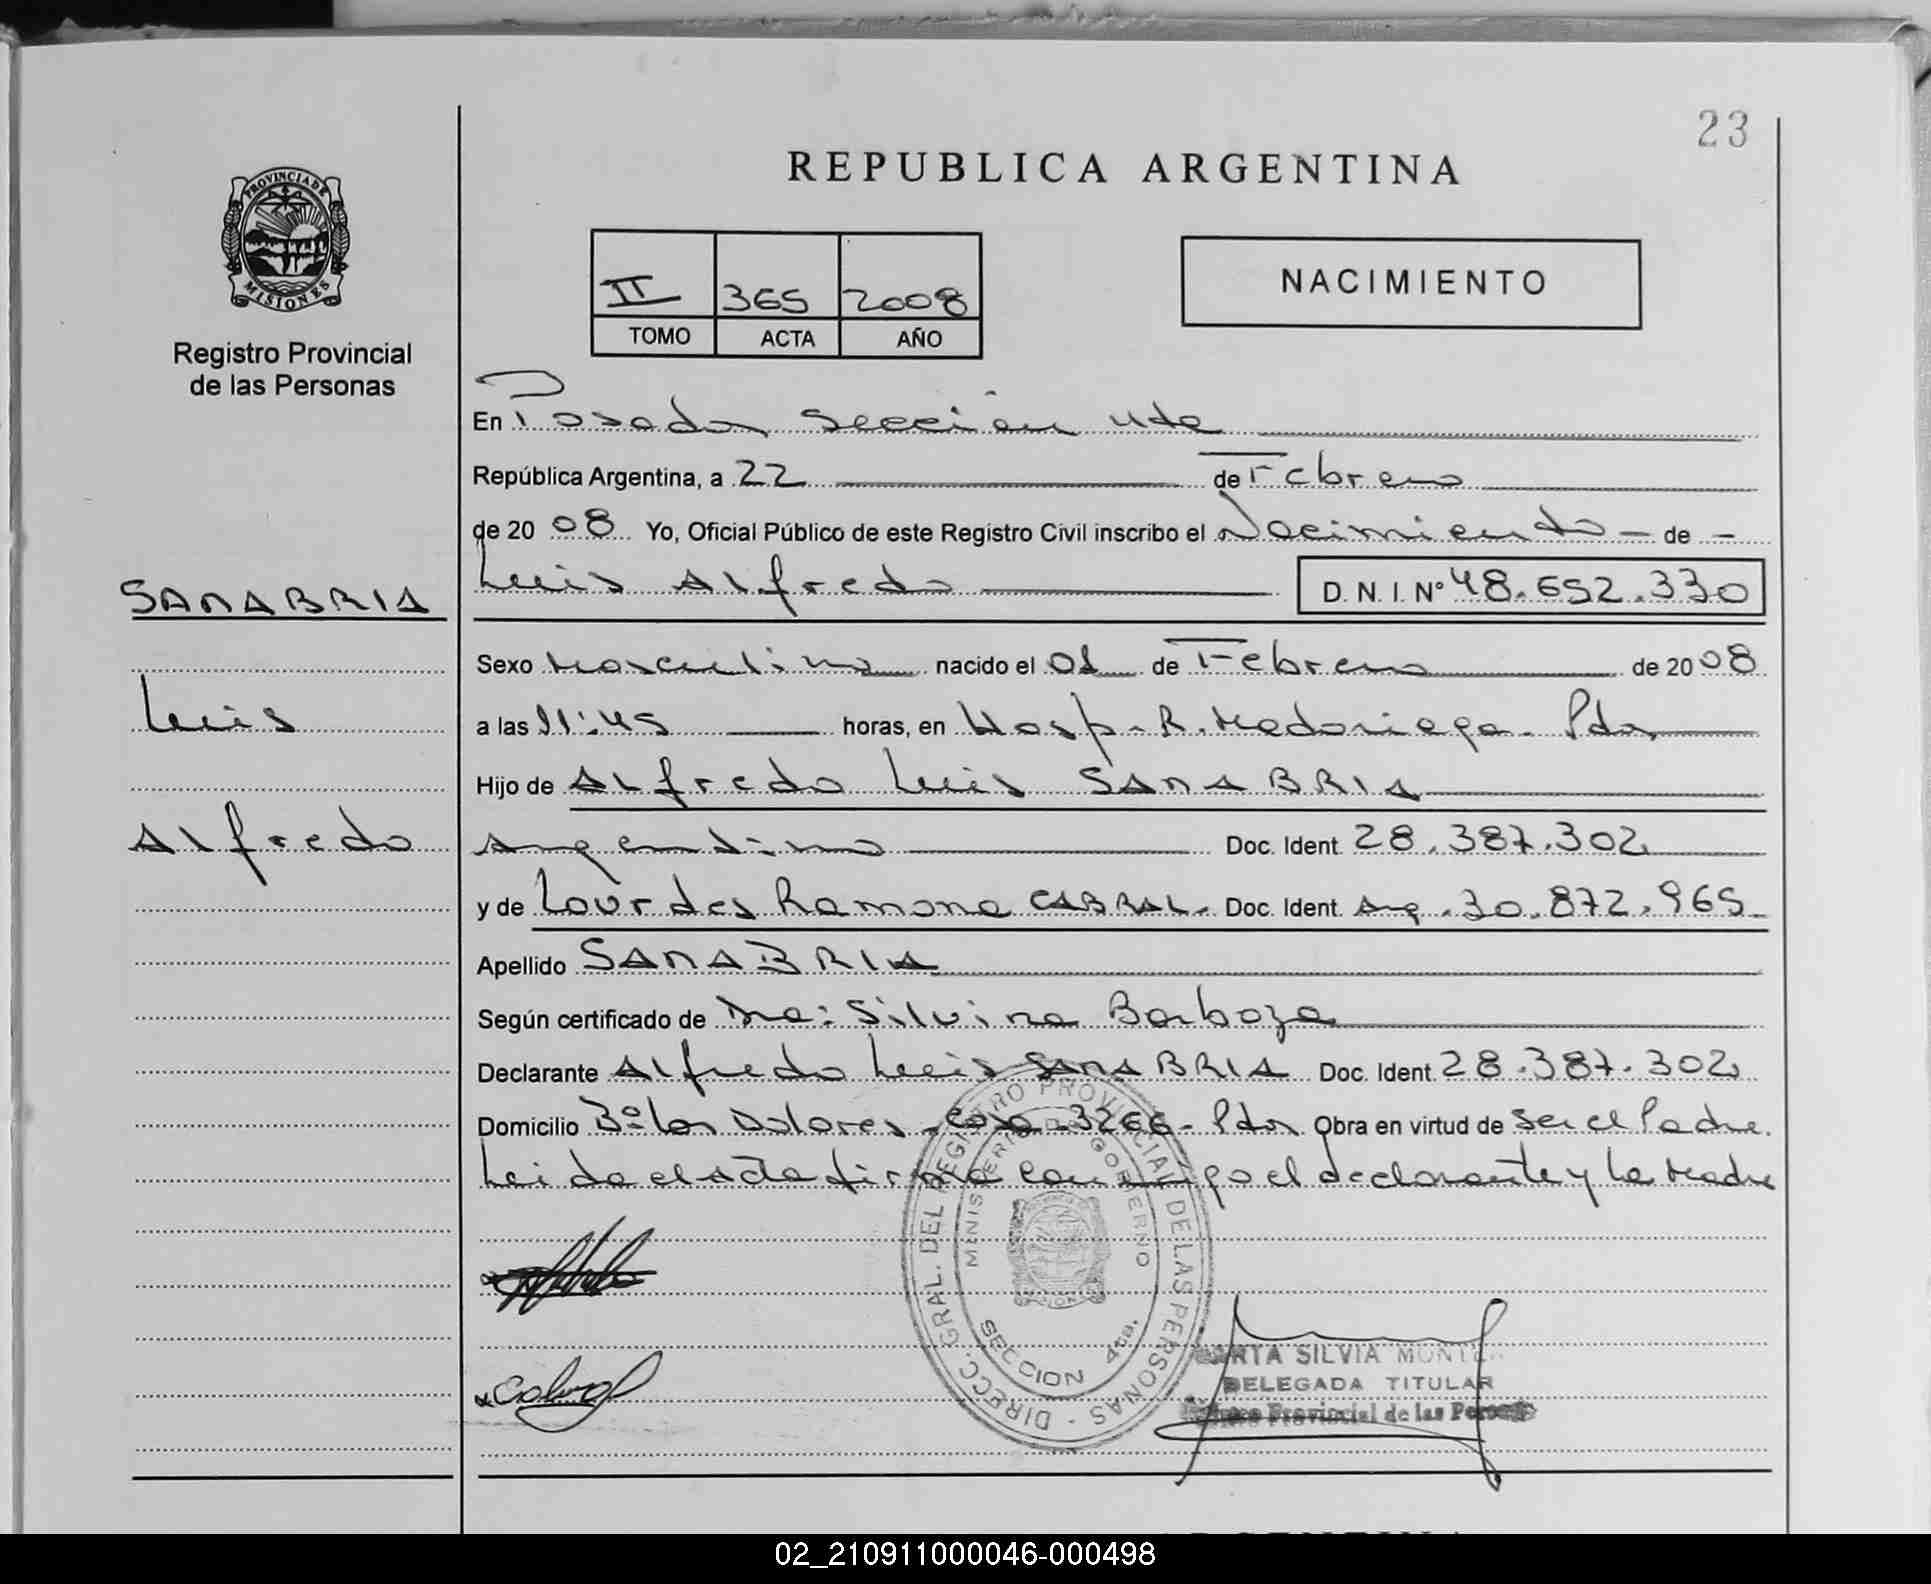 23
REPUBLICA ARGENTINA
PROVINCIA DE
MISIONES
Registro Provincial
de las Personas
II 365 2008
TOMO ACTA AÑO
NACIMIENTO
En Posadas sección 4ta
República Argentina, a 22 de Febrero
de 20 08 Yo, Oficial Público de este Registro Civil inscribo el Nacimiento - de -
Luis Alfredo D. N. I. N° 48.652.330
SANABRIA
Sexo Masculino nacido el 01 de Febrero de 20 08
Luis
a las 11:45 horas, en Hosp. R. Madariaga. Pdas
Hijo de Alfredo Luis SANABRIA
Alfredo
Argentino Doc. Ident. 28.387.302
y de Lourdes Ramona CABRAL. Doc. Ident. Arg. 30.872.965
Apellido SANABRIA
Según certificado de Dra: Silvina Barboza
Declarante Alfredo Luis SANABRIA Doc. Ident. 28.387.302
Domicilio B° Los Dolores - Casa 3266 - Pdas Obra en virtud de ser el Padre.
Leida el acta firma conmigo el declarante y la Madre
DIRECC. GRAL. DEL REGISTRO PROVINCIAL DE LAS PERSONAS
MINISTERIO DE GOBIERNO
SECCION 4ta.
Cabral
MARTA SILVIA
DELEGADA TITULAR
Provincial de las Personas
02_210911000046-000498